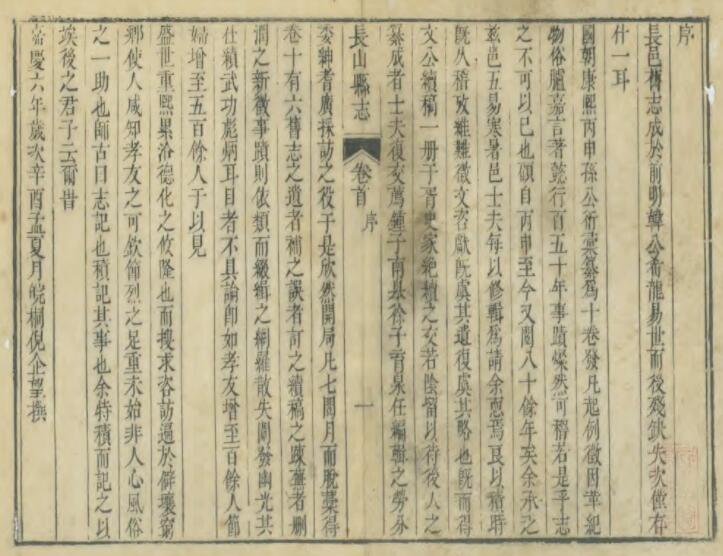 序
長邑舊志成於前明韓公希龍易世而後殘缺失次僅存
什一耳
國朝康熙丙申孫公衍彙纂爲十卷發凡起例徵因革紀
物俗臚嘉言著懿行百五十年事蹟燦然可稽若是乎志
之不可以已也顧自丙申至今又閱八十餘年矣余承乏
茲邑五易寒暑邑士夫每以修輯爲請余恧焉良以積時
既久稽攷維難徵文咨獻既虞其遺復虞其略也既而得
文公續稿一册于胥史家絶積之交若陰留以待後人之
纂成者士夫復交薦鍾子南
徐子
任編輯之勞分
委紳耆廣採訪之役于是欣然開局凡七閱月而脫稾得
卷十有六舊志之遺者補之誤者訂之續稿之踈蕪者刪
潤之新徵事蹟則依類而綴緝之網羅散失闡發幽光其
仕績武功彪炳耳目者不具論卽如孝友增至百餘人節
婦增至五百餘人于以見
盛世重熙累洽德化之攸隆也而搜求咨訪遍於僻壤窮
鄉使人咸知孝友之可欽節烈之足重未始非人心風俗
之一助也師古曰志記也積記其事也余特積而記之以
俟後之君子云爾昔
嘉慶六年歲次辛酉孟夏月皖桐倪企望撰
長山縣志
卷首
序
一